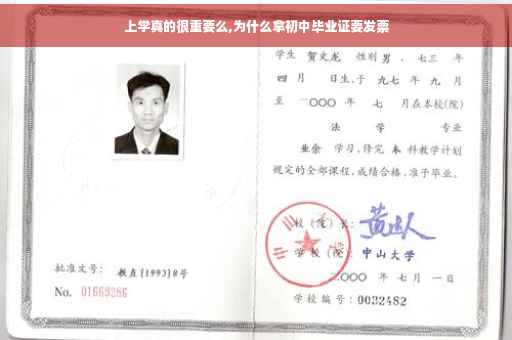 上学真的很重要么,为什么拿初中毕业证要发票
学生 贺文龙 性别 男 、七三 年
四 月 日生,于 九七 年 九 月
至 二〇〇〇 年 七 月在本校(院)
法 学 专业
业余 学习,修完 本 科教学计划
规定的全部课程,成绩合格,准予毕业。
校(院)长:
学校(院): 中山大学
二〇〇〇 年 七 月 一 日
批准文号: 教直(1993)8号
No. 01669286
学校编号: 0032482